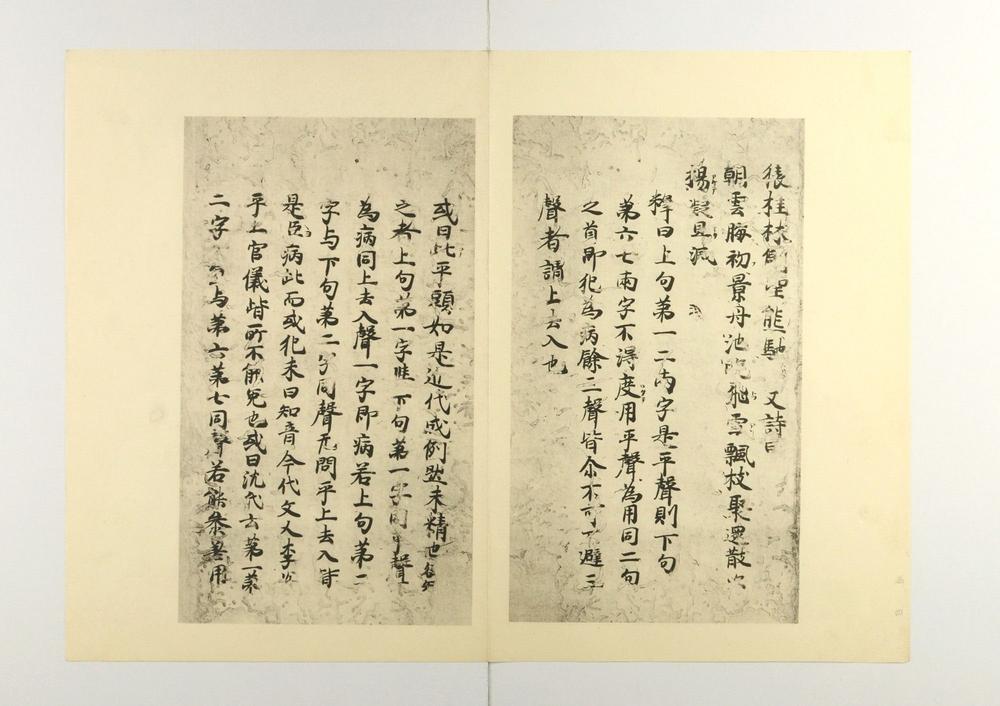 猿桂林側坐熊馳　又詩曰
朝雲晦初景丹池晚飛雪飄枝聚還散
揚凝且滅
釋曰上句第一二兩字是平聲則下句
第六七兩字不得度用平聲為用同二句
之首即犯為病餘三聲皆尒不可不避三
聲者謂上去入也
或曰此平頭如是近代成例然未精也
之者上句第一字下句第一字同平聲
為病同上去入聲一字即病若上句第二
字与下句第二字同聲无問平上去入皆
是巨病此而或犯未曰知音今代文人李
平上官儀皆所不能免也或曰沈氏云第一第
二字与第六第七同聲若能參差用